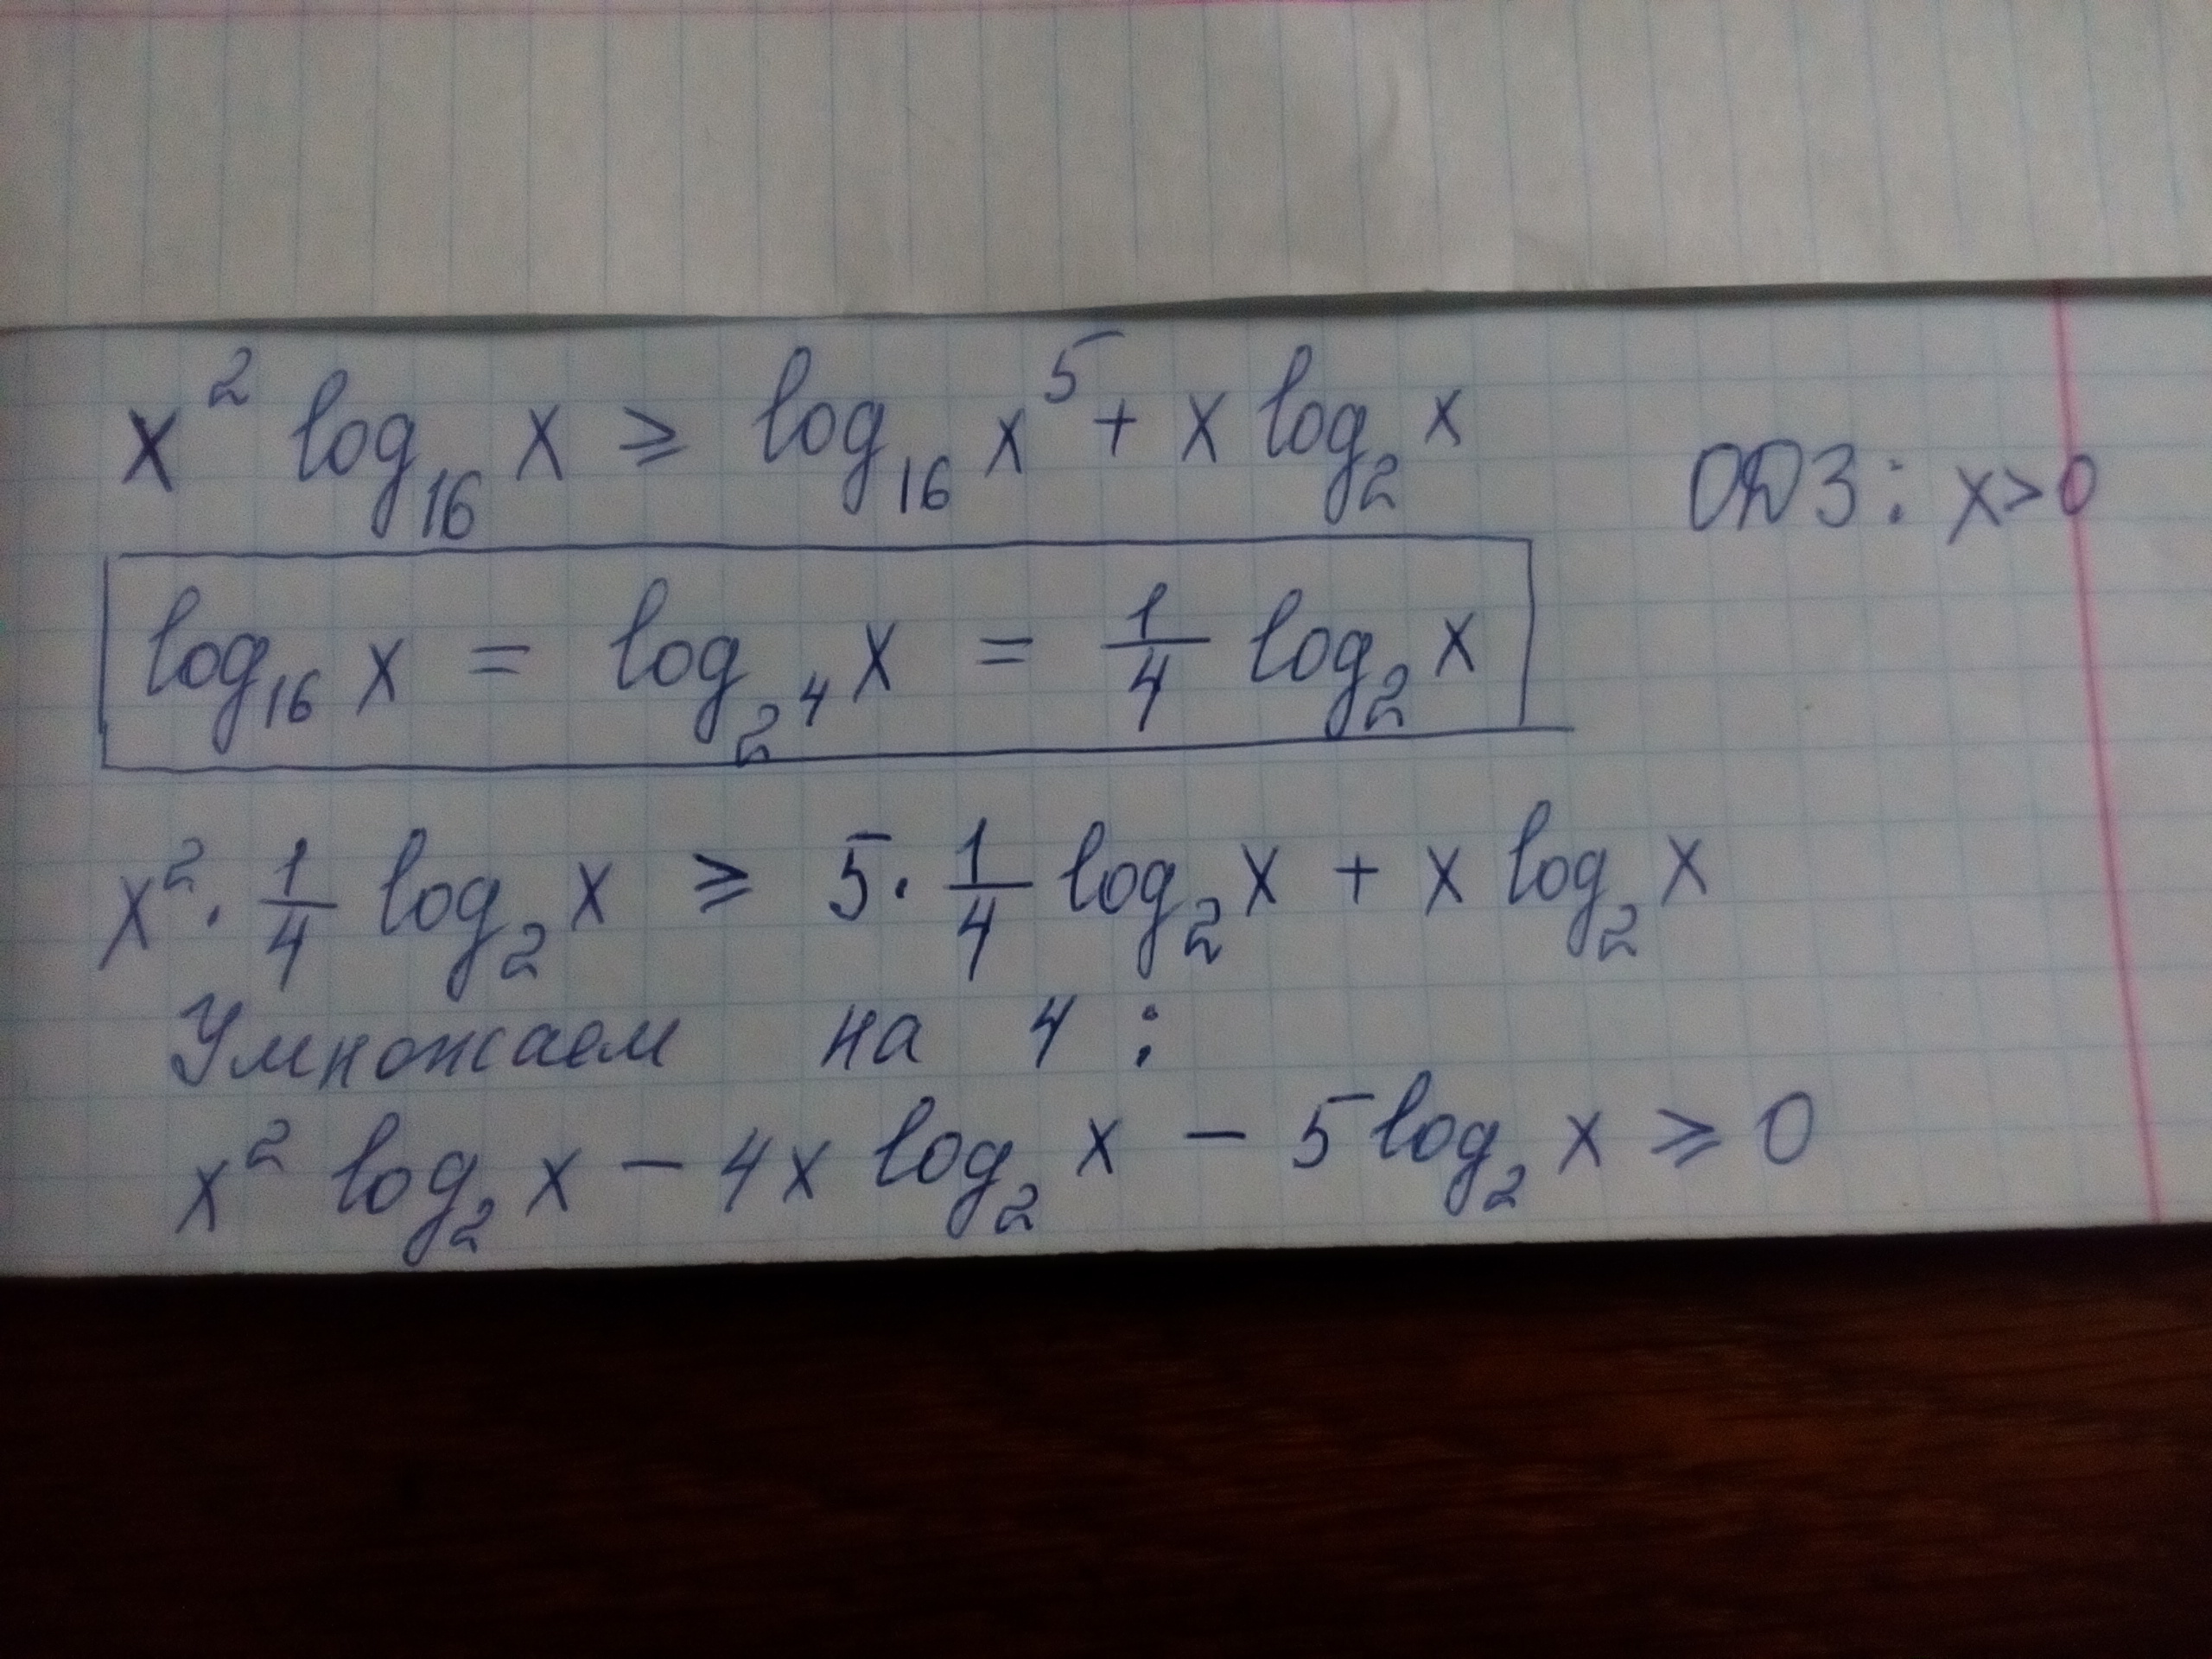 x² log₁₆ x ⩾ log₁₆ x⁵ + x log₂ x
ОДЗ: x>0
log₁₆ x = log₂⁴ x = 1/4 log₂ x
x² · 1/4 log₂ x ⩾ 5 · 1/4 log₂ x + x log₂ x
Умножаем на 4:
x² log₂ x − 4x log₂ x − 5 log₂ x ⩾ 0